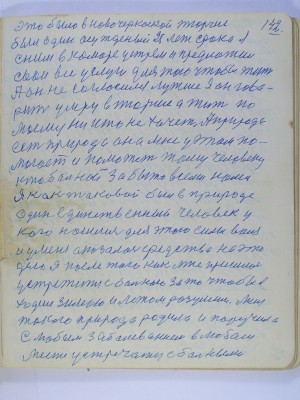 142.
это было в новочеркаской тюрме
был один осужденый 8 лет срока я
сним в коморе устрем и предложил
свои все услуги для того чтобы жить
А он не согласился лутше я он гова-
рить умру в тюрме а жить по
твоему ни что не хочет. А природа
ест природа она мне у этом по-
могает и поможет тому человеку
кто балной забыто всеми нами
Я как таковой был в природе
один единственный человек у
кого хошения для этого сили воля
и у меня оказалос средство на это
дело я после того как мне пришлос
устретится с балною за то что он в
ходил зимою и летом разутим. Мене
такого природа родила и получила
с любым заболеванием в любом
месте устречатся с балными